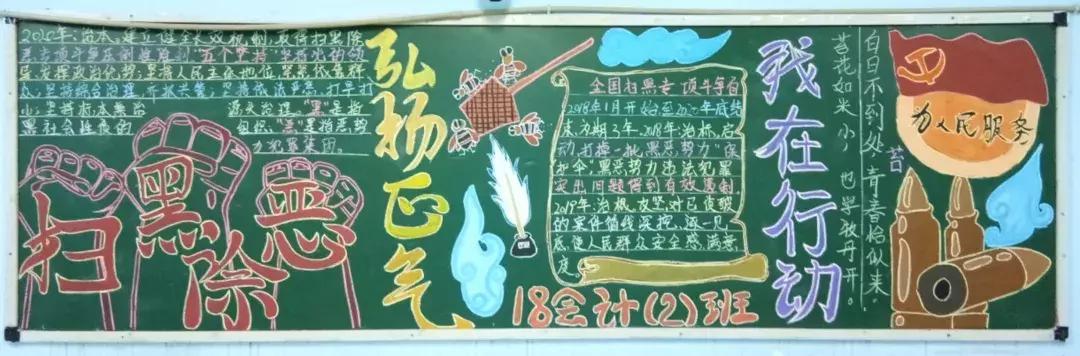 2020年:治本,建立健全长效机制,取得扫黑除
恶专项斗争压倒性胜利。"五个坚持"坚持党的领
导,发挥政治优势;坚持人民主体地位,紧紧依靠群
众;坚持综合治理,齐抓共管;坚持依法严惩,打早打
小;坚持标本兼治
源头治理。"黑"是指
黑社会性质的
组织,"恶"是指恶势
力犯罪集团。
扫黑除恶
弘扬正气
全国扫黑专项斗争自
2018年1月开始至2020年底结
束,为期三年,2018年:治标,启
动,打掉一批黑恶势力"保
护伞,黑恶势力违法犯罪
突出问题得到有效遏制
2019年:治根,攻坚对已侦破
的案件循线深挖,逐一见
底,使人民群众安全感,满意
度。
18会计(2)班
我在行动
白日不到处,青春恰似来。
苔花如米小,也学牡丹开。
苔
为人民服务